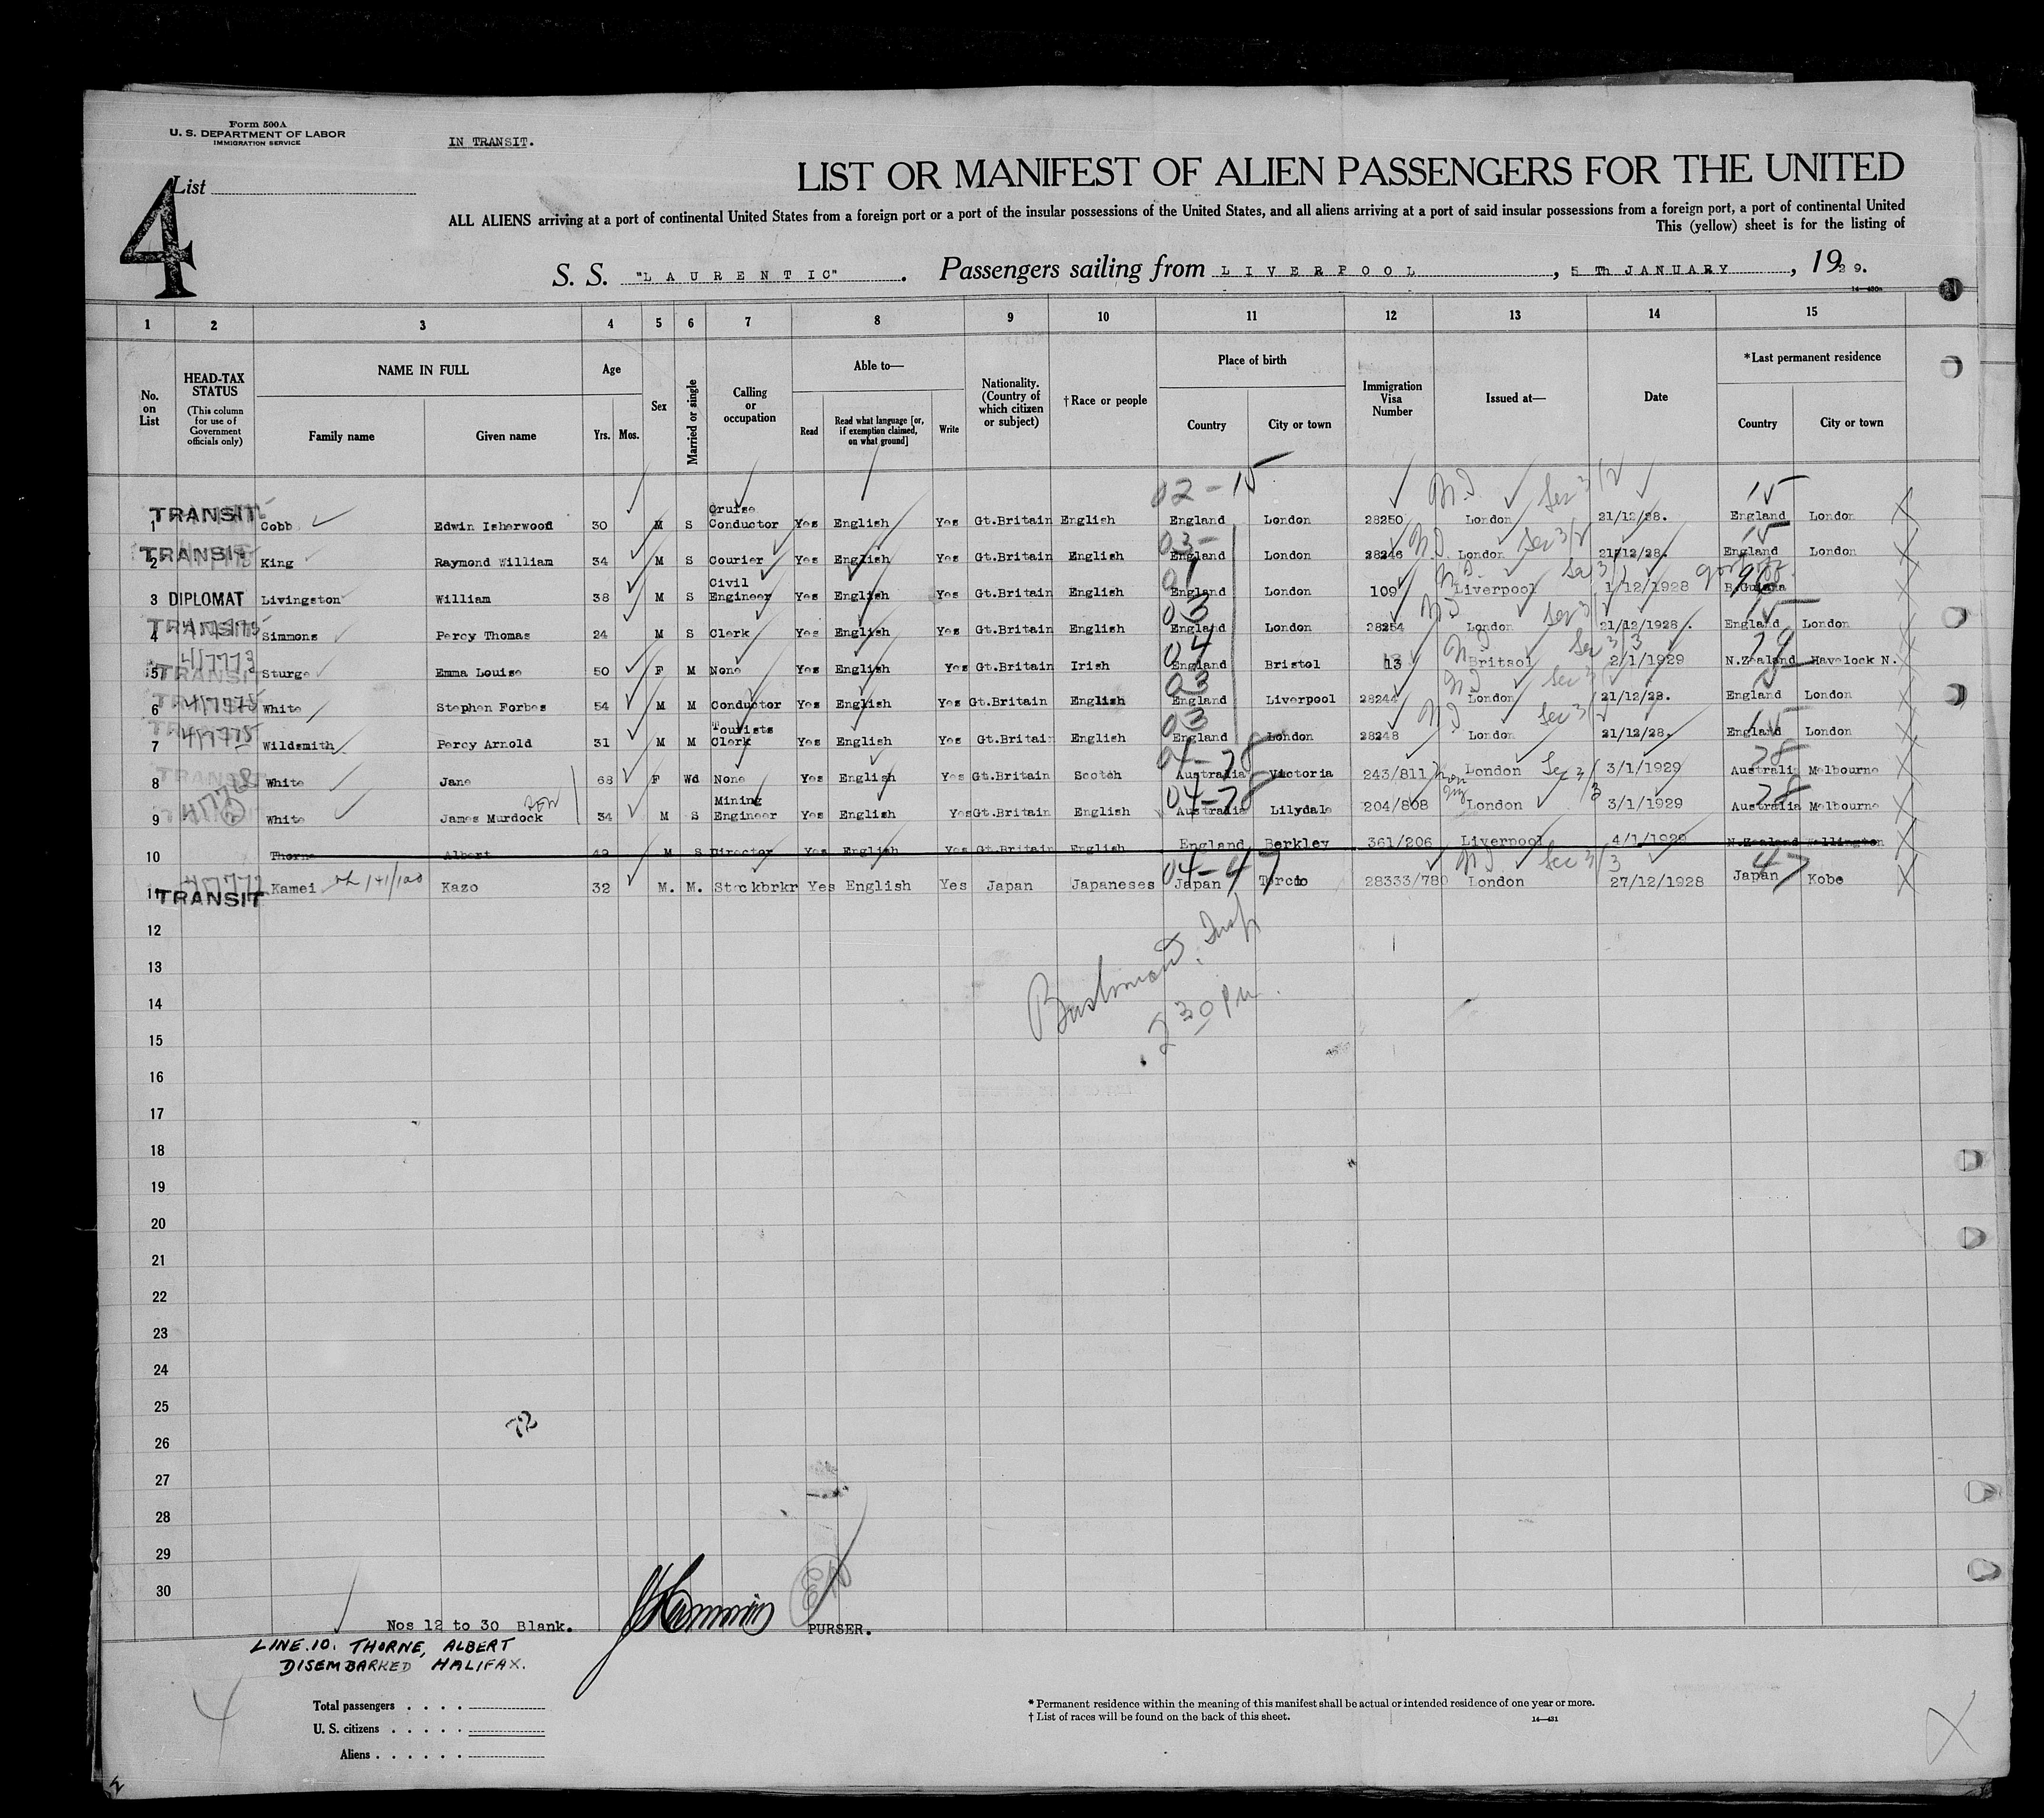 Form 500A
U. S. DEPARTMENT OF LABOR
IMMIGRATION SERVICE
IN TRANSIT.
List
4
LIST OR MANIFEST OF ALIEN PASSENGERS FOR THE UNITED
ALL ALIENS arriving at a port of continental United States from a foreign port or a port of the insular possessions of the United States, and all aliens arriving at a port of said insular possessions from a foreign port, a port of continental United
This (yellow) sheet is for the listing of
S. S. "LAURENTIC". Passengers sailing from LIVERPOOL, 5 Th JANUARY, 1929.
14—430a
1 2 3 4 5 6 7 8 9 10 11 12 13 14 15
No. on List
HEAD-TAX STATUS (This column for use of Government officials only)
NAME IN FULL Family name Given name
Age Yrs. Mos.
Sex
Married or single
Calling or occupation
Able to— Read Read what language [or, if exemption claimed, on what ground] Write
Nationality. (Country of which citizen or subject)
†Race or people
Place of birth Country City or town
Immigration Visa Number
Issued at—
Date
*Last permanent residence Country City or town
02-15 N.I. Sec 3/2 15
1 TRANSIT Cobb Edwin Isherwood 30 M S Cruise Conductor Yes English Yes Gt.Britain English England London 28250 London 21/12/28. England London
03- N.I. Sec 3/2 15
2 TRANSIT King Raymond William 34 M S Courier Yes English Yes Gt.Britain English England London 28246 London 21/12/28. England London
3 DIPLOMAT Livingston William 38 M S Civil Engineer Yes English Yes Gt.Britain English England London 109 Liverpool 1/12/1928 B.Guiana
03 N.I. Sec 3/2 15
4 TRANSIT Simmons Percy Thomas 24 M S Clerk Yes English Yes Gt.Britain English England London 28254 London 21/12/1928. England London
04 N.I. Sec 3/3 79
5 TRANSIT Sturge Emma Louise 50 F M None Yes English Yes Gt.Britain Irish England Bristol 13 Britsol 2/1/1929 N.Zealand Havelock N.
03 N.I. Sec 3/
6 White Stephen Forbes 54 M M Conductor Yes English Yes Gt.Britain English England Liverpool 28244 London 21/12/28. England London
03 N.I. Sec 3/2 15
7 Wildsmith Percy Arnold 31 M M Tourists Clerk Yes English Yes Gt.Britain English England London 28248 London 21/12/28. England London
04-78 78
8 White Jane 68 F Wd None Yes English Yes Gt.Britain Scotch Australia Victoria 243/811 London Sec 3/3 3/1/1929 Australia Melbourne
04-78 78
9 White James Murdock son 34 M S Mining Engineer Yes English Yes Gt.Britain English Australia Lilydale 204/808 London 3/1/1929 Australia Melbourne
10 Thorne Albert 49 M S Director Yes English Yes Gt.Britain English England Berkley 361/206 Liverpool 4/1/1929 N.Zealand Wellington
04-47 N.I. Sec 3/3 47
11 TRANSIT Kamei Kazo 32 M. M. Stockbrkr Yes English Yes Japan Japaneses Japan 28333/780 London 27/12/1928 Japan Kobe
12
13
14
15
16
17
18
19
20
21
22
23
24
25
26
27
28
29
30
Insp.
2 30 Pm.
72
Nos 12 to 30 Blank.
PURSER.
LINE.10. THORNE, ALBERT
DISEMBARKED HALIFAX.
4
Total passengers
U. S. citizens
Aliens
* Permanent residence within the meaning of this manifest shall be actual or intended residence of one year or more.
† List of races will be found on the back of this sheet.
14—431